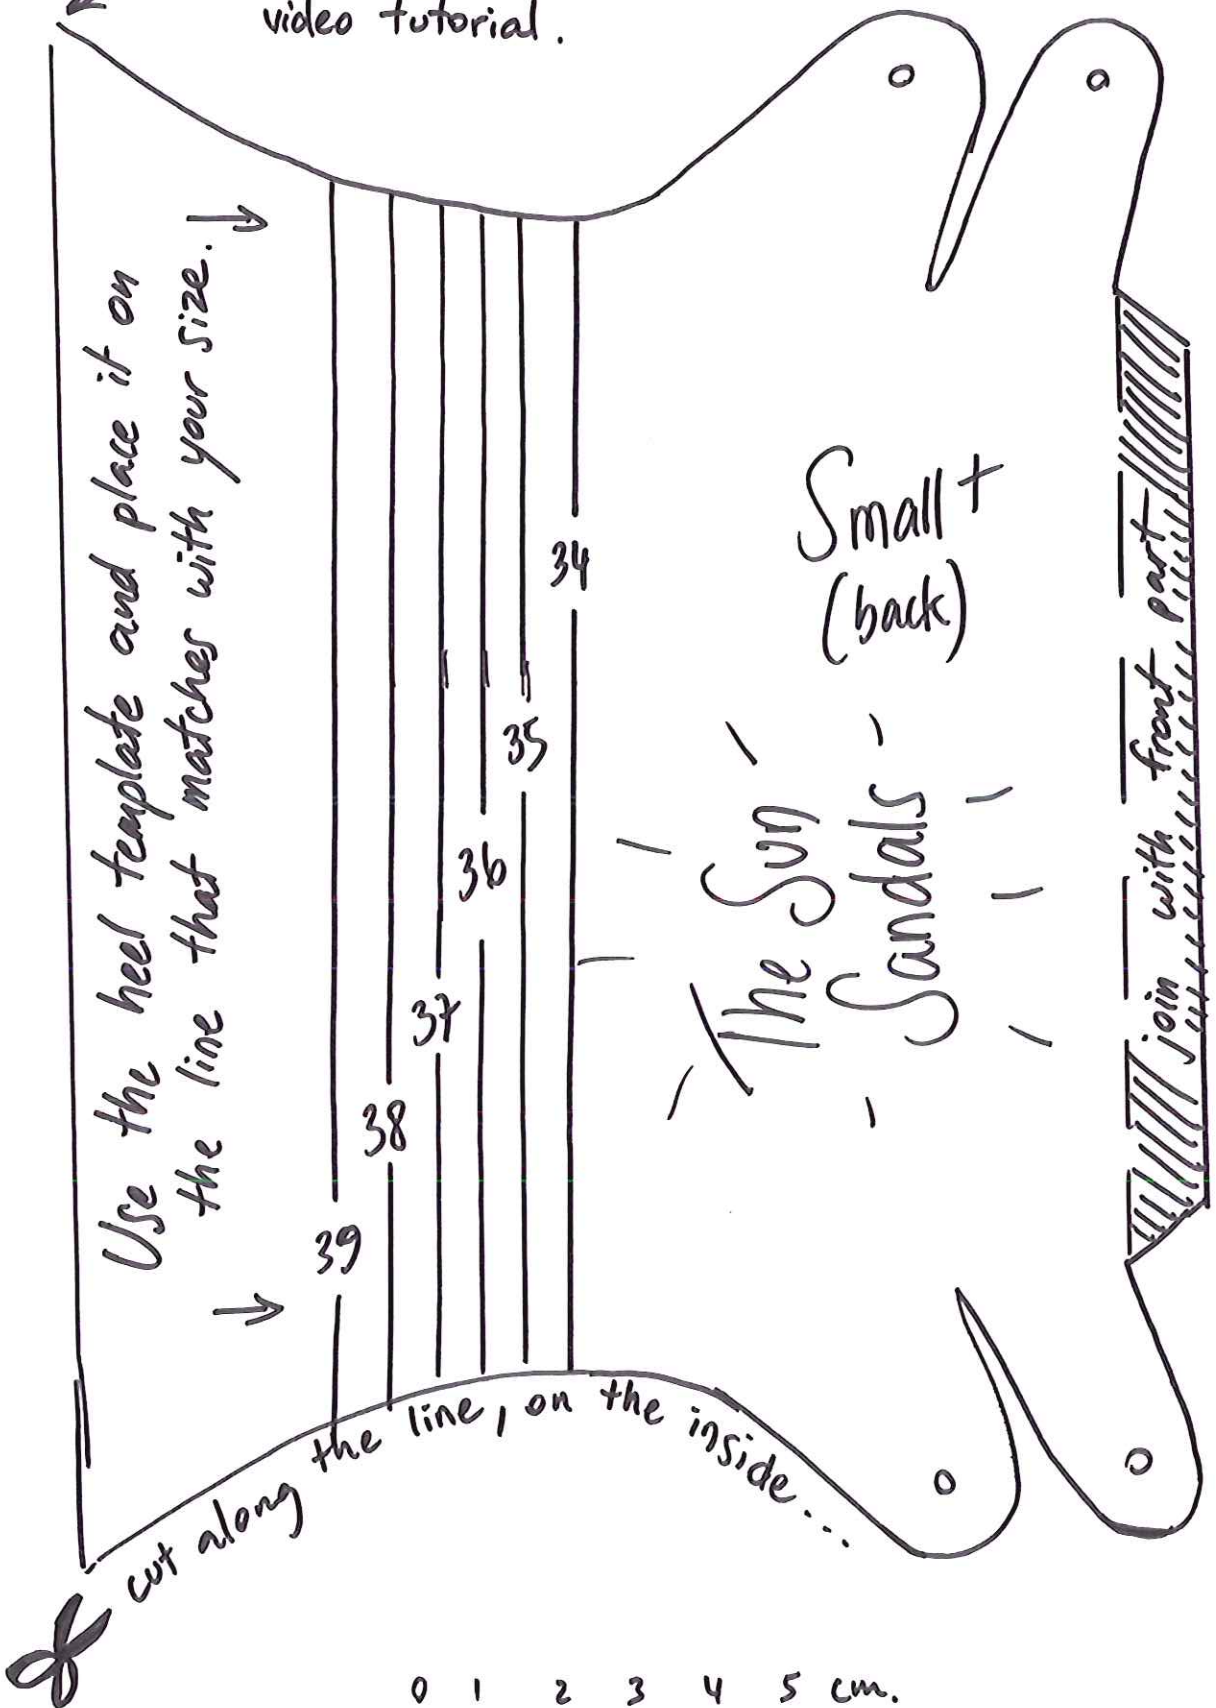 video tutorial.
Use the heel template and place it on
the line that matches with your size.
34
35
36
37
38
39
Small +
(back)
The Sun
Sandals
join with front part
cut along the line, on the inside...
0 1 2 3 4 5 cm.